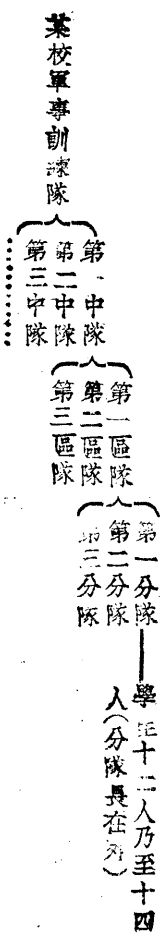 某校軍事訓練隊
第一中隊
第二中隊
第三中隊
第一區隊
第二區隊
第三區隊
第一分隊
第二分隊
第三分隊
學生十二人乃至十四
人(分隊長在外)